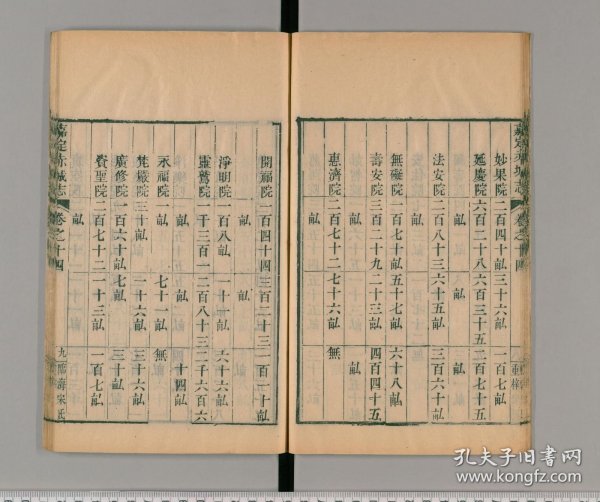 嘉定赤城志 卷之十四 重梓
妙果院 二百四十畝 三十六畝 一百七畝
延慶院 六百二十八 六百三十五 二百七十五
畝 畝 畝
法安院 二百八十三 六十五畝 三百六十畝
畝
無礙院 一百七十畝 五十七畝 六十八畝
壽安院 三百二十九 二十三畝 四百四十五
畝 畝
惠濟院 二百七十二 七十六畝 無
畝
開福院 一百四十四 三百二十三 一百二十畝
畝 畝
淨明院 一百八畝 一十一畝 六十六畝
靈鷲院 一千三百一 二百八十三 二千六百六
畝 畝 十四畝
永福院 一十一畝 七十一畝 無
梵嚴院 三十畝 一十六畝 三十畝
廣修院 一百六十畝 七畝 三十畝
資聖院 二百七十二 一十三畝 一百七畝
畝
嘉定赤城志 卷之十四 九 臨海宋氏
孔夫子旧书网
kongfz.com